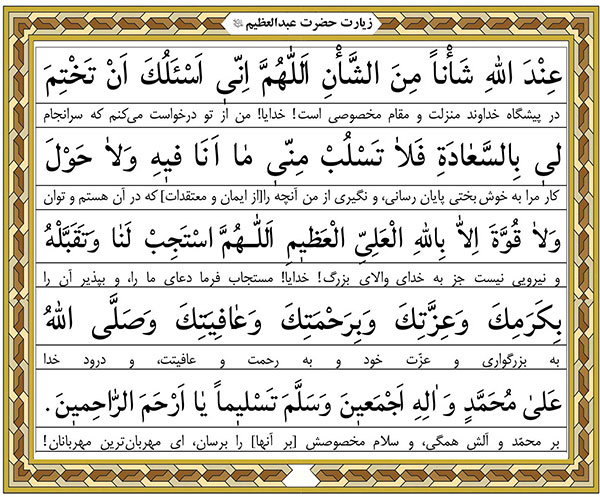 زیارت حضرت عبدالعظیم
عِنْدَ اللهِ شَأْناً مِنَ الشَّأْنِ اَللّٰهُمَّ اِنّى اَسْئَلُكَ اَنْ تَخْتِمَ
در پیشگاه خداوند منزلت و مقام مخصوصی است! خدایا! من از تو درخواست می‌کنم که سرانجام
لى بِالسَّعٰادَةِ فَلاٰ تَسْلُبْ مِنّى مٰا اَنَا فیهِ وَلاٰ حَوْلَ
کار مرا به خوش بختی پایان رسانی، و نگیری از من آنچه را[از ایمان و معتقدات] که در آن هستم و توان
وَلاٰ قُوَّةَ اِلاّٰ بِاللهِ الْعَلِىِّ الْعَظیمِ اَللّٰهُمَّ اسْتَجِبْ لَنٰا وَتَقَبَّلْهُ
و نیرویی نیست جز به خدای والای بزرگ! خدایا! مستجاب فرما دعای ما را، و بپذیر آن را
بِكَرَمِكَ وَعِزَّتِكَ وَبِرَحْمَتِكَ وَعٰافِیَتِكَ وَصَلَّى اللهُ
به بزرگواری و عزّت خود و به رحمت و عافیتت، و درود خدا
عَلىٰ مُحَمَّدٍ وَ اٰلِهِ اَجْمَعینَ وَسَلَّمَ تَسْلیماً یٰا اَرْحَمَ الرّٰاحِمینَ.
بر محمّد و آلش همگی، و سلام مخصوصش [بر آنها] را برسان، ای مهربان‌ترین مهربانان!